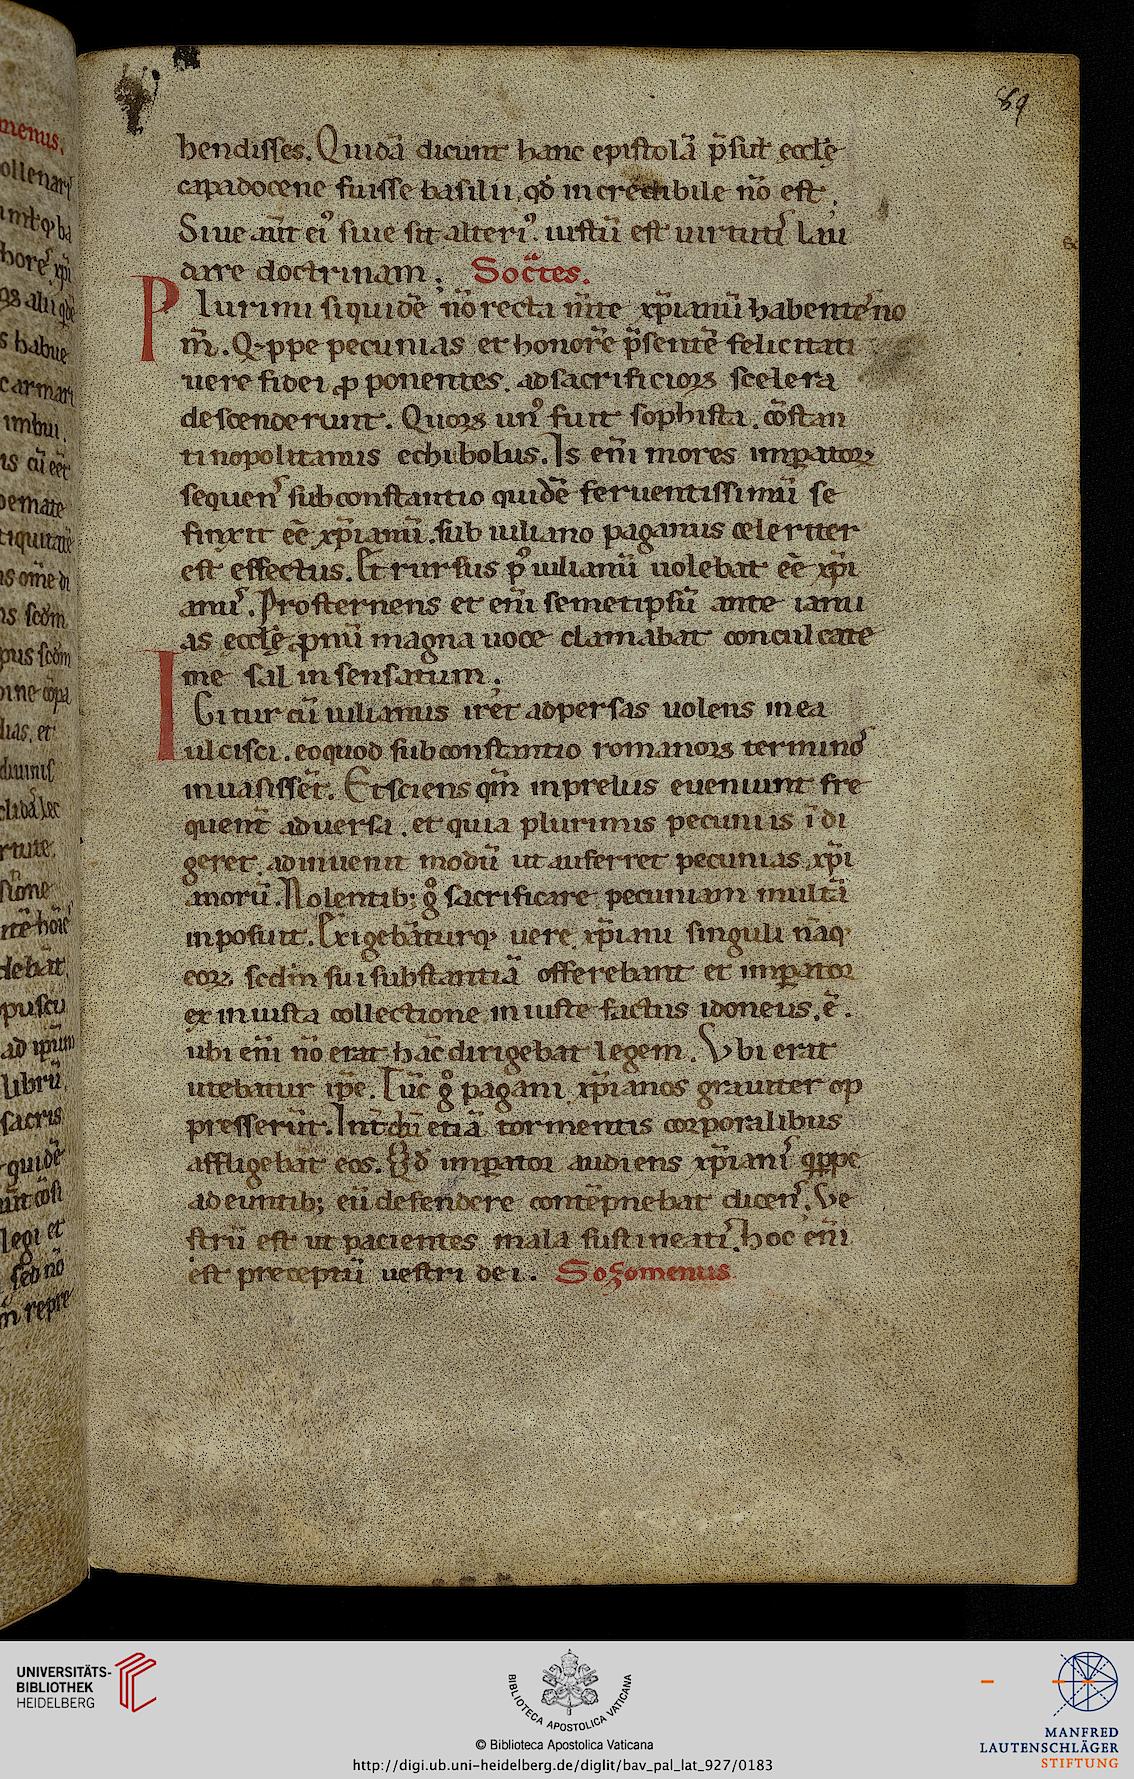 89
hendisses. Quidā dicunt hanc epistolā p̄sul ecclę̄
capadocene fuisse basilii, qđ incredibile nō est.
Siue aūt eiꝰ siue sit alteriꝰ. iustū est uirtutiſ lau
dare doctrinam. Socr̄tes.
Plurimi siquidē nō recta m̄te xp̄ianū habenteſ no
m̄. Qꝛppe pecunias et honorē p̄sentē felicitati
uere fidei ꝓponentes. ad sacrificioꝝ scelera
descenderunt. Quoꝝ unꝰ fuit sophista cōstan
tinopolitanus echibolus. Is eni̅ mores imꝑatoꝝ
sequenſ sub constantio quidē feruentissimū se
finxit eē xp̄ianū. sub iuliano paganus celeriter
est effectus. Et rursus pꝰ iulianū uolebat eē xp̄i
anuſ. Prosternens et eni̅ semetipsū ante ianu
as ecclę̄ pronū magna uoce clamabat conculcate
me sal insensatum.
IGitur cū iulianus iret ad persas uolens in ea
ulcisci. eo quod sub constantio romanoꝝ terminoſ
inuasissēt. Et sciens qm̄ in preliis eueniunt fre
quent̄ aduersa. et quia plurimis pecuniis īdi
geret. adinuenit modū ut auferret pecunias xp̄i
anorū. Nolentib; gͦ sacrificare pecuniam multā
inposuit. Exigebāturq; uere xp̄iani singuli nāq;
eoꝝ scđm sui substantiā offerebant et imꝑator
ex iniusta collectione iniuste factus idoneus ē.
ubi eni̅ nō erat hāc dirigebat legem. Vbi erat
utebatur ip̄e. Tūc gͦ pagani xp̄ianos grauiter op
presserūt. Int̄dū etiā tormentis corporalibus
affligebāt eos. Qđ imꝑator audiens xp̄ianiſ qꝑpe
adeuntib; eū defendere contēpnebat dicenſ. Ve
strū est ut pacientes mala sustineatiſ. hoc eni̅
est preceptū uestri dei. Sozomenus
UNIVERSITÄTS-
BIBLIOTHEK
HEIDELBERG
BIBLIOTECA APOSTOLICA VATICANA
© Biblioteca Apostolica Vaticana
http://digi.ub.uni-heidelberg.de/diglit/bav_pal_lat_927/0183
MANFRED
LAUTENSCHLÄGER
STIFTUNG